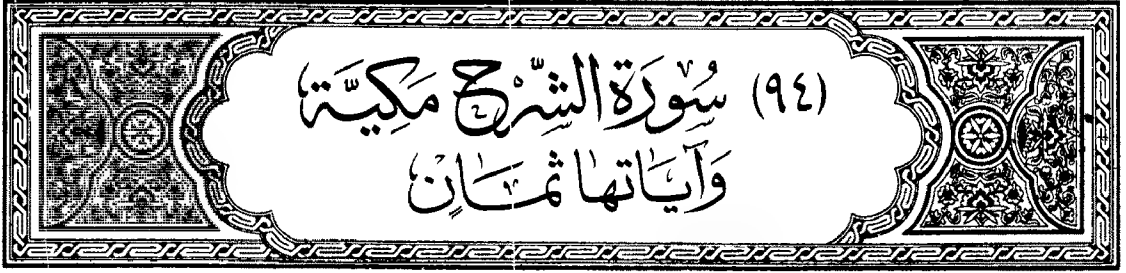 (٩٤) سُورَة الشَّرْح مَكيَّة
وَآيَاتهَا ثمَانٍ